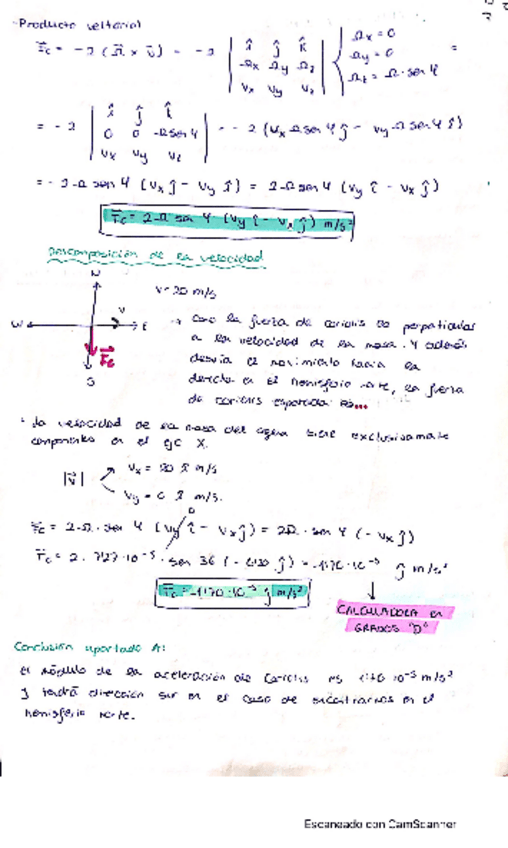 Producto vectorial
F⃗c = -2 (Ω⃗ x v⃗) = -2 | î ĵ k̂ | Ωx = 0
Ωx Ωy Ωz | Ωy = 0
vx vy vz | Ωz = Ω · sen φ
= -2 | î ĵ k̂ |
0 0 Ω sen φ = -2 (vx Ω sen φ ĵ - vy Ω sen φ î)
vx vy vz
= -2Ω sen φ (vx ĵ - vy î) = 2Ω sen φ (vy î - vx ĵ)
F⃗c = 2Ω sen φ (vy î - vx ĵ) m/s²
Descomposición de la velocidad
N
v = 20 m/s
W E v
F⃗c
S
→ Como la fuerza de coriolis es
a la velocidad de la masa y además
desvía el movimiento hacia la
derecha en el hemisferio norte, la fuerza
de coriolis es...
* La velocidad de la masa del agua tiene exclusivamente
componentes en el eje X.
|v⃗| vx = 20 î m/s
vy = 0 î m/s.
0
F⃗c = 2·Ω·sen φ (vy î - vx ĵ) = 2Ω·sen φ (-vx ĵ)
F⃗c = 2 · 7'27·10⁻⁵ · sen 36 (- ĵ) = -1'70·10⁻³ ĵ m/s²
F⃗c = -1'70·10⁻³ ĵ m/s²
CALCULADORA en
GRADOS "D"
Conclusión apartado A:
el módulo de la aceleración de Coriolis es 1'70·10⁻³ m/s²
y tendrá dirección sur en el caso de encontrarnos en el
hemisferio norte.
Escaneado con CamScanner